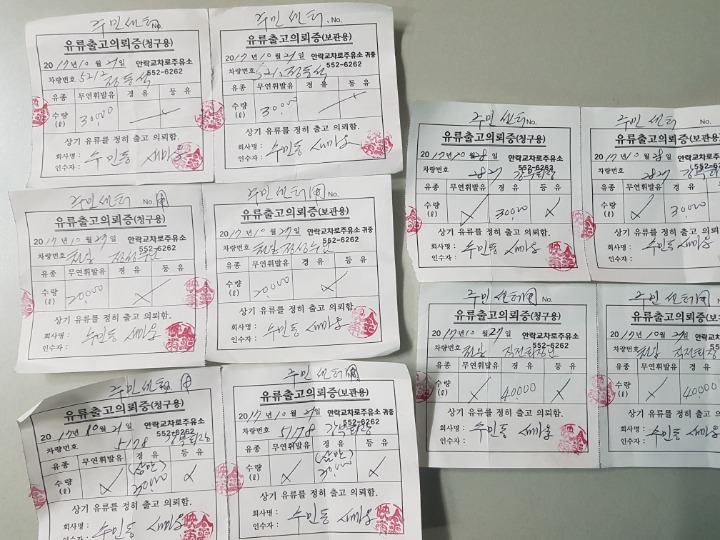 주민센터 No.
유류출고의뢰증(청구용)
2017년 10월 29일 안락교차로주유소
552-6262
차량번호 5212
유종 무연휘발유 경유 등유
수량(ℓ) 30000
상기 유류를 정히 출고 의뢰함.
회사명 : 수민동 새마을
인수자 :
주민센터 No.
유류출고의뢰증(보관용)
2017년 10월 29일 안락교차로주유소 귀중
552-6262
차량번호 5212
유종 무연휘발유 경유 등유
수량(ℓ) 30000
상기 유류를 정히 출고 의뢰함.
회사명 : 수민동 새마을
인수자 :
주민센터 No.
유류출고의뢰증(청구용)
2017년 10월 29일 안락교차로주유소
552-6262
차량번호
유종 무연휘발유 경유 등유
수량(ℓ) 20000
상기 유류를 정히 출고 의뢰함.
회사명 : 수민동 새마을
인수자 :
주민센터 No.
유류출고의뢰증(보관용)
2017년 10월 29일 안락교차로주유소 귀중
552-6262
차량번호
유종 무연휘발유 경유 등유
수량(ℓ) 20000
상기 유류를 정히 출고 의뢰함.
회사명 : 수민동 새마을
인수자 :
주민센터
유류출고의뢰증(청구용)
2017년 10월 21일 안락교차로주유소
552-6262
차량번호 5178
유종 무연휘발유 경유 등유
수량(ℓ) (삼만) 30000
상기 유류를 정히 출고 의뢰함.
회사명 : 수민동 새마을
인수자 :
주민센터
유류출고의뢰증(보관용)
2017년 10월 21일 안락교차로주유소 귀중
552-6262
차량번호 5178
유종 무연휘발유 경유 등유
수량(ℓ) (삼만) 30000
상기 유류를 정히 출고 의뢰함.
회사명 : 수민동 새마을
인수자 :
주민센터 No.
유류출고의뢰증(청구용)
2017년 10월 28일 안락교차로주유소
552-6262
차량번호 2827
유종 무연휘발유 경유 등유
수량(ℓ) 30000
상기 유류를 정히 출고 의뢰함.
회사명 : 수민동 새마을
인수자 :
주민센터 No.
유류출고의뢰증(보관용)
2017년 10월 28일 안락교차로
차량번호 2827
유종 무연휘발유 경유
수량(ℓ) 30000
상기 유류를 정히 출고 의뢰함.
회사명 : 수민동 새마을
인수자 :
주민센터 No.
유류출고의뢰증(청구용)
2017년 10월 27일 안락교차로주유소
552-6262
차량번호
유종 무연휘발유 경유 등유
수량(ℓ) 40000
상기 유류를 정히 출고 의뢰함.
회사명 : 수민동 새마을
인수자 :
주민센터 No.
유류출고의뢰증(보
2017년 10월 27일 안락교차로
차량번호
유종 무연휘발유 경유
수량(ℓ) 40000
상기 유류를 정히 출고 의뢰
회사명 : 수민동 새마을
인수자 :